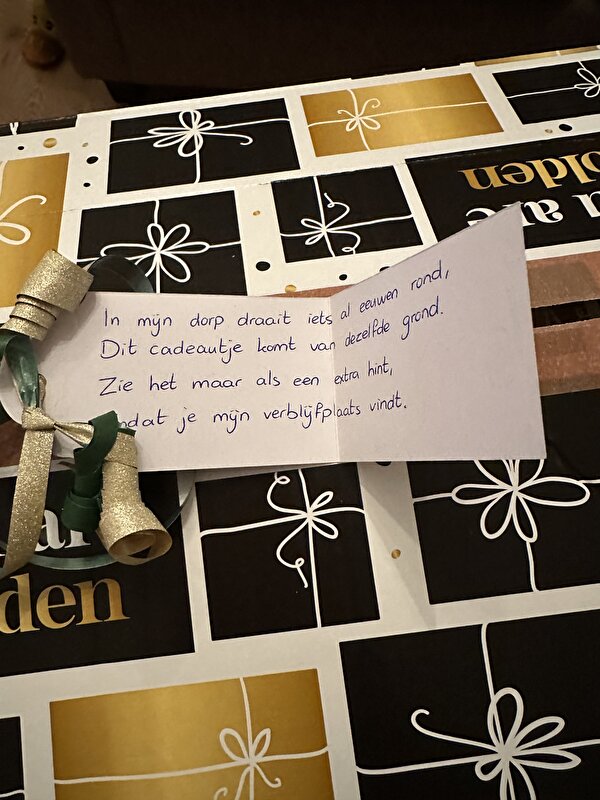 u are
olden
In mijn dorp draait iets al eeuwen rond,
Dit cadeautje komt van dezelfde grond.
Zie het maar als een extra hint,
je mijn verblijfplaats vindt.
ar
den